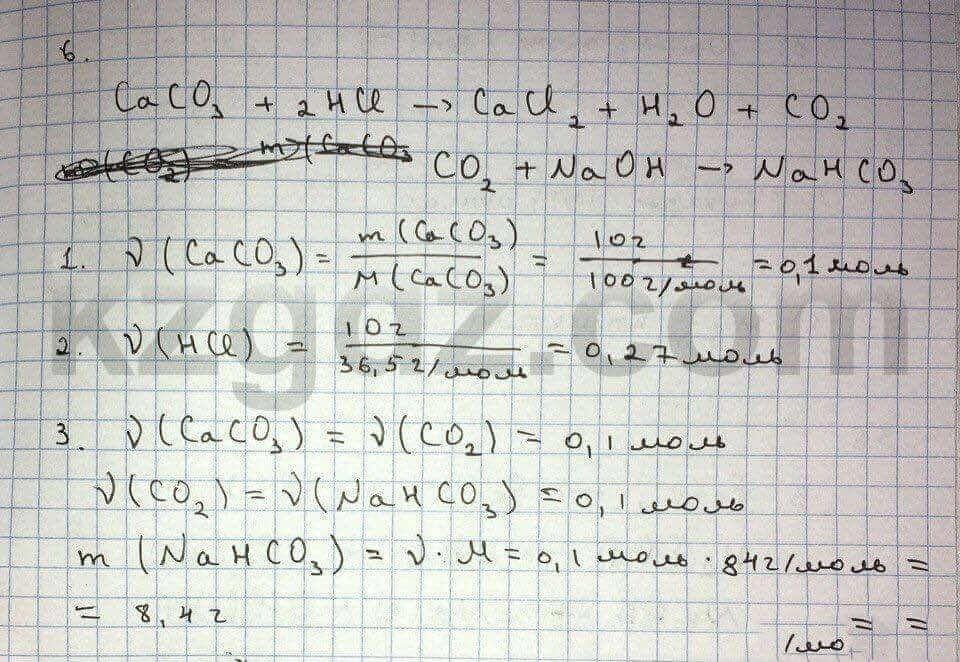 6.
CaCO₃ + 2HCl → CaCl₂ + H₂O + CO₂
CO₂ + NaOH → NaHCO₃
1. ν(CaCO₃) = m(CaCO₃) / M(CaCO₃) = 10г / 100г/моль = 0,1 моль
2. ν(HCl) = 10г / 36,5г/мол = 0,27 моль
3. ν(CaCO₃) = ν(CO₂) = 0,1 моль
ν(CO₂) = ν(NaHCO₃) = 0,1 моль
m(NaHCO₃) = ν · M = 0,1 моль · 84г/моль =
= 8,4г
/мо = =
kzgdz.com